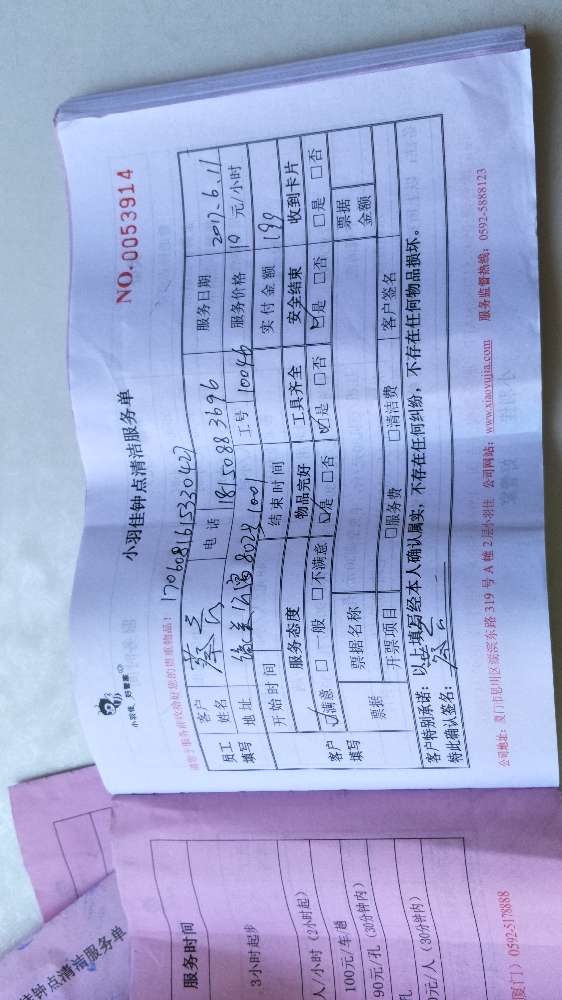 小羽佳 好管家
小羽佳钟点清洁服务单
NO. 0053914
1706081615330427
客户姓名 蔡云 电话 18150883696 服务日期 2017.6.11
员工填写
地址 8028 1001 工号 10046 服务价格 19 元/小时
开始时间 结束时间 实付金额 199
客户填写
服务态度 物品完好 工具齐全 安全结束 收到卡片
☑满意 □一般 □不满意 ☑是 □否 ☑是 □否 ☑是 □否 □是 □否
票据 票据名称 票据金额
开票项目 □服务费 □清洁费 客户签名
客户特别承诺：以上填写经本人确认属实，不存在任何纠纷，不存在任何物品损坏。
特此确认签名： 蔡云
公司地址：厦门市思明区莲滨东路 319 号 A 幢 2 层小羽佳 公司网站：www.xiaoyujia.com 服务监督热线：0592-5888123
服务时间
3小时起步
人/小时（2小时起）
100元/车/趟
90元/孔（30分钟内）
孔
元/人（30分钟内）
厦门）0592-5178888
佳钟点清洁服务单